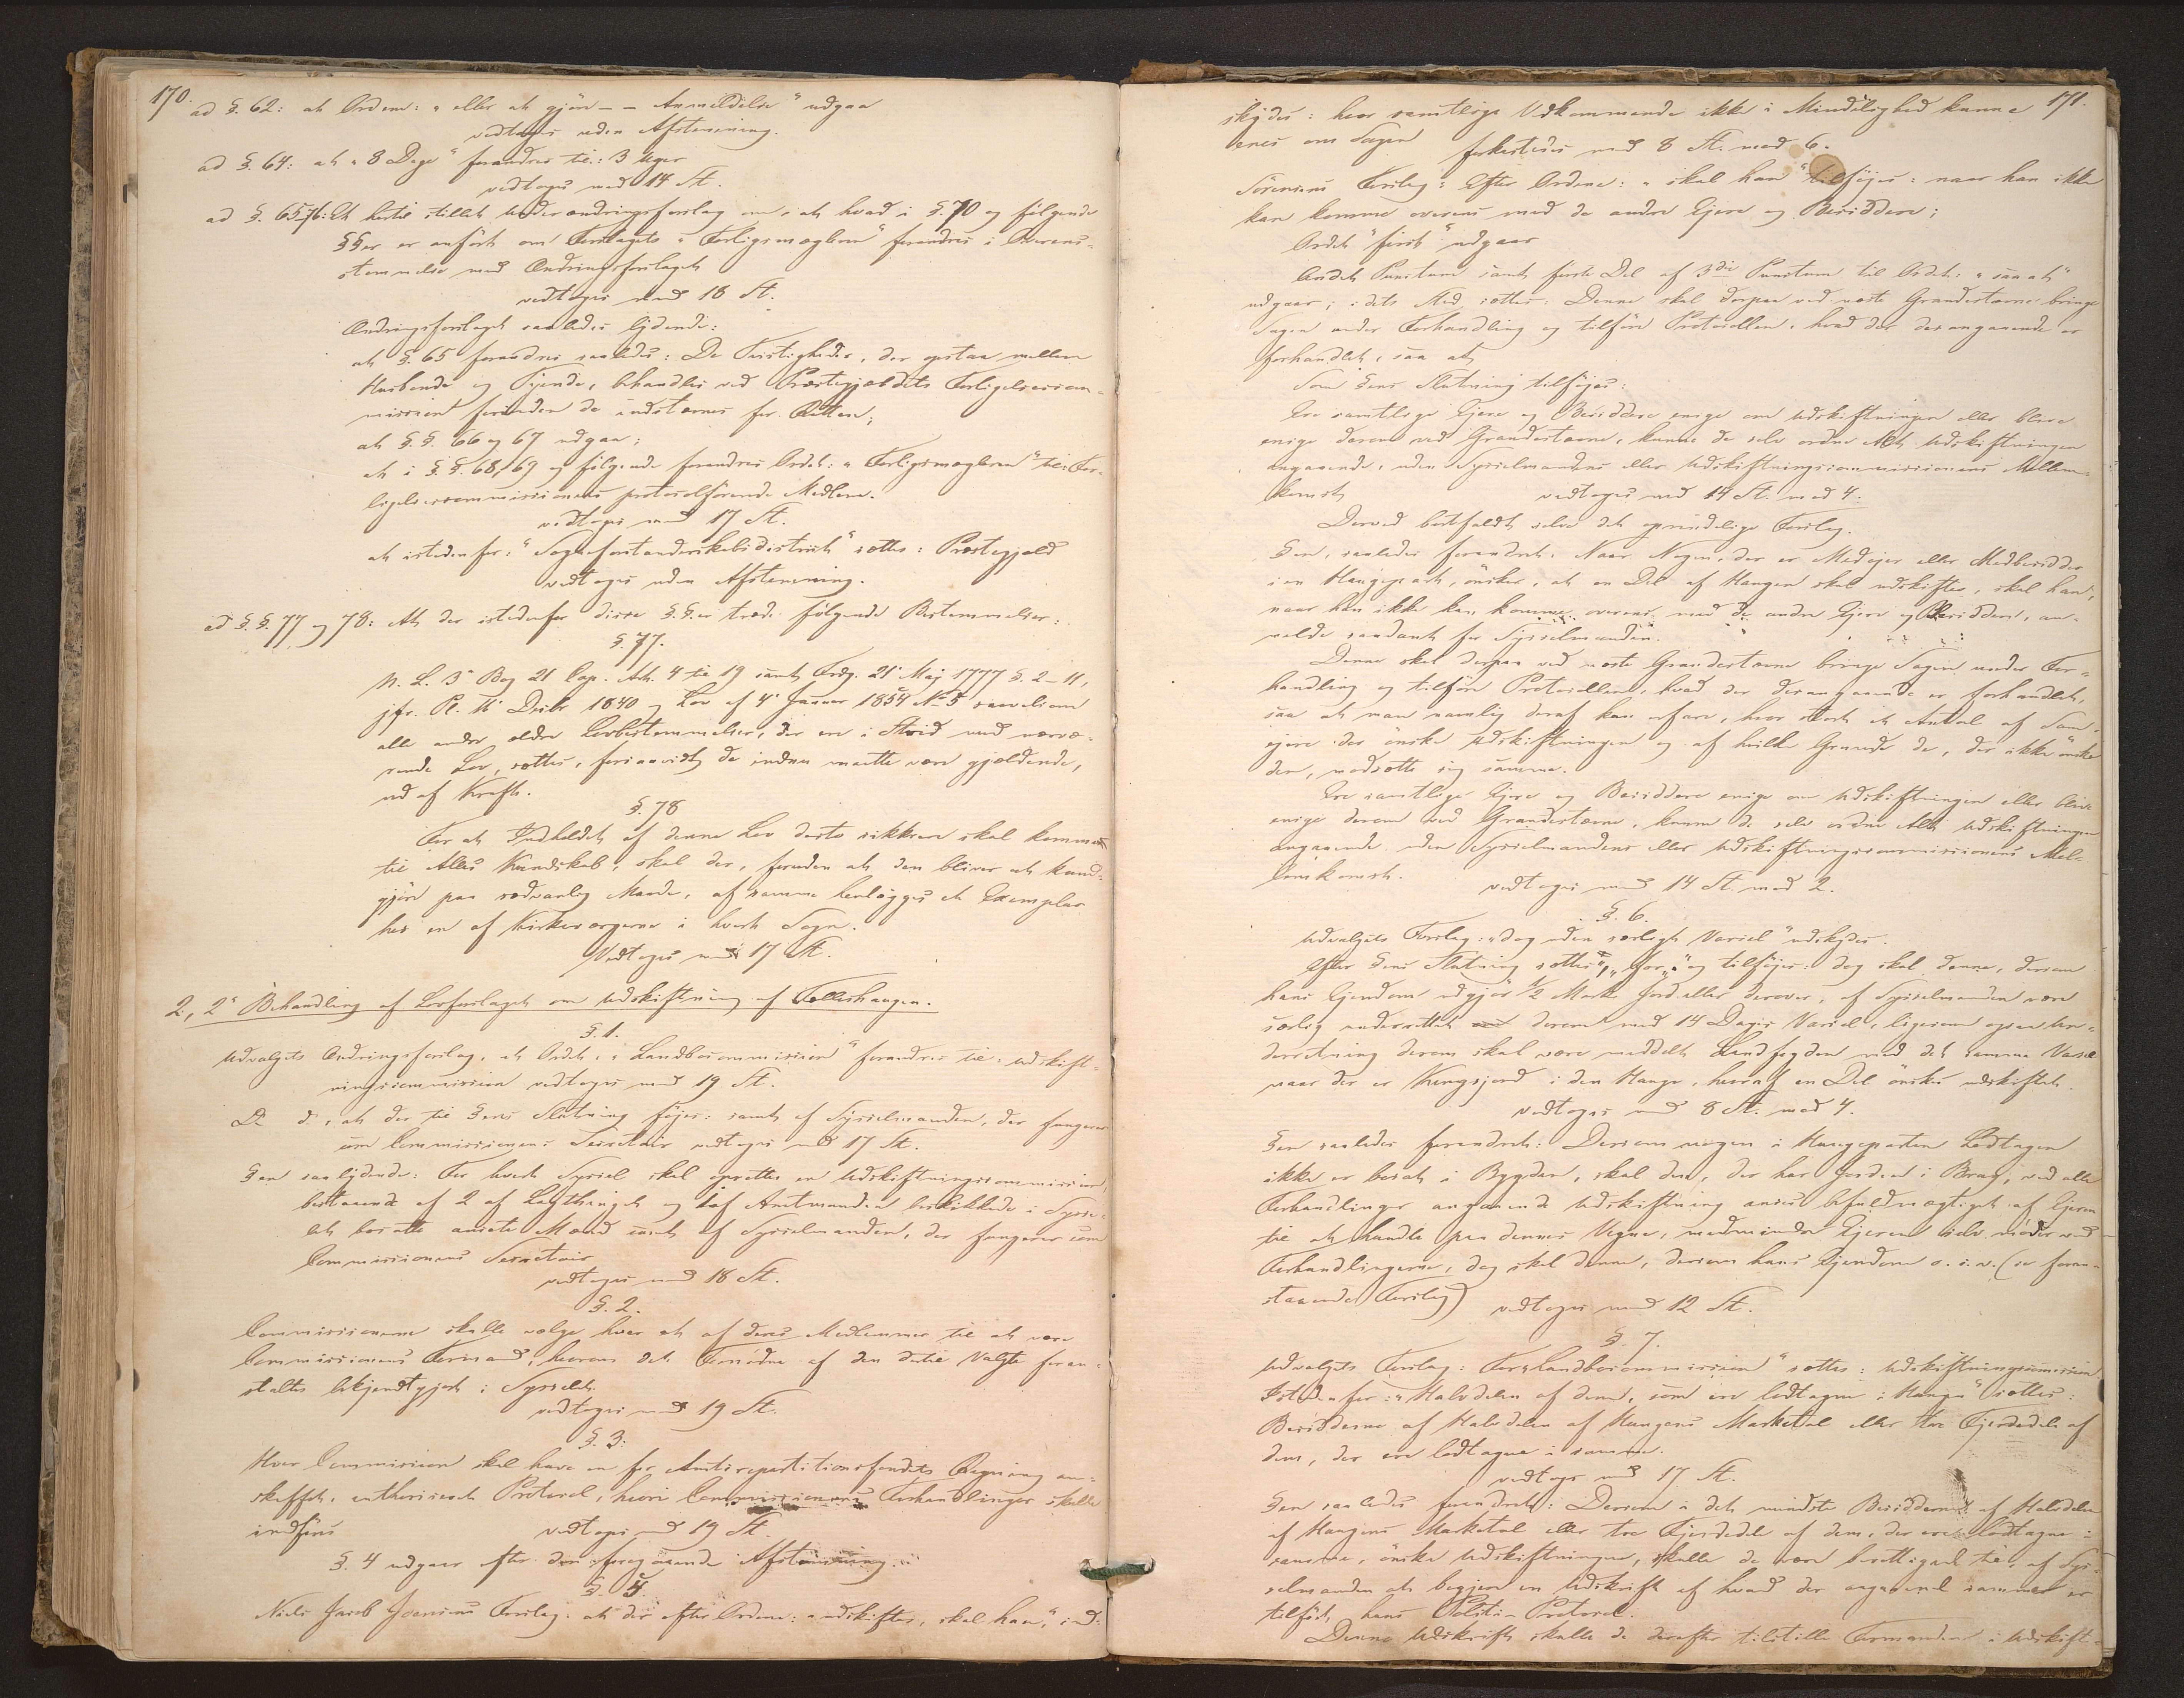 170.
ad §. 62: at Ordene: "eller at gjöre – – Anmeldelse" udgaa
vedtoges uden Afstemning.
ad §. 64: at "8 Dage" forandres til: 3 Uger
vedtoges med 14 St.
ad §. 65-76: Et hertil stillet Underændringsforslag om, at hvad i §. 70 og følgende
§§er er anført om Forslagets "Forligsmæglere" forandres i Overens-
stemmelse med Ændringsforslaget
vedtoges med 18 St.
Ændringsforslaget saaledes lydende:
at §. 65 forandres saaledes: De Tvistigheder, der opstaa mellem
Husbonde og Tyende, behandles ved Præstegjældets Forligelsescom-
mission forinden de indstævnes for Retten;
at §.§. 66 og 67 udgaa;
at i §.§. 68, 69 og følgende forandres Ordet: "Forligsmæglerne" til: For-
ligelsescommissionens protocolførende Medlem.
vedtoges med 17 St.
at istedenfor: "Sogneforstanderskabsdistrict" sættes: Præstegjæld
vedtoges uden Afstemning.
ad §.§. 77 og 78: At der istedenfor disse §.§.er træde følgende Bestemmelser:
§. 77.
N. L. 3' Bog 21 Cap. Art. 4 til 19 samt Frdg. 21' Maj 1777 §. 2–11,
jfr. Pl. 11' Decbr 1840 og Lov af 4' Januar 1854 No 5 saavelsom
alle andre ældre Lovbestemmelser, der ere i Strid med nærvæ-
rende Lov, sættes, forsaavidt de endnu maatte være gjældende,
ud af Kraft.
§. 78
For at Indholdet af denne Lov desto sikkrere skal komme
til Alles Kundskab, skal der, foruden at den bliver at kund-
gjöre paa sædvanlig Maade, af samme henlægges et Exemplar
hos en af Kirkeværgerne i hvert Sogn.
Vedtoges med 17 St.
2, 2' Behandling af Lovforslaget om Udskiftning af Fælleshaugen.
§. 1.
Udvalgets Ændringsforslag, at Ordet: "Landbocommission" forandres til: Udskift-
ningscommission vedtoges med 19 St.
D. d., at der til §ens Slutning føjes: samt af Sysselmanden, der fungerer
som Commissionens Secretair vedtoges med 17 St.
§en saalydende: For hvert Syssel skal oprettes en Udskiftningscommission,
bestaaende af 2 af Lagthinget og 1 af Amtmanden beskikkede i Sysse-
let bosatte ansete Mænd samt af Sysselmanden, der fungerer som
Commissionens Secretair
vedtoges med 18 St.
§. 2.
Commissionerne skulle vælge hver et af deres Medlemmer til at være
Commissionens Formand, hvorom det Fornødne af den dertil Valgte foran-
staltes bekjendtgjort i Sysselet.
vedtoges med 19 St.
§. 3.
Hver Commission skal have en for Amtsrepartitionsfondets Regning an-
skaffet, authoriseret Protocol, hvori Commissionens Forhandlinger skulle
indføres vedtoges med 19 St.
§. 4 udgaar efter den foregaaende Afstemning.
§. 5.
Niels Jacob Joensens Forslag, at der efter Ordene: "udskiftes, skal han," ind-
171.
skydes: hvor samtlige Vedkommende ikke i Mindelighed kunne
enes om Sagen forkastedes med 8 St. mod 6.
Sörensens Forslag: Efter Ordene: "skal han" tilføjes: naar han ikke
kan komme overens med de andre Ejere og Besiddere;
Ordet "först" udgaar
Andet Punctum samt første Del af 3die Punctum til Ordet: "saa at"
udgaar; i dets Sted sættes: Denne skal derpaa ved næste Grandestævne bringe
Sagen under Forhandling og tilføre Protocollen, hvad der desangaaende er
forhandlet, saa at
Som §ens Slutning tilføjes:
Ere samtlige Ejere og Besiddere enige om Udskiftningen eller blive
enige derom ved Grandestævne, kunne de selv ordne Alt Udskiftningen
angaaende, uden Sysselmandens eller Udskiftningscommissionens Mellem-
komst vedtoges med 14 St. mod 4.
Derved bortfaldt selve det oprindelige Forslag.
§en, saaledes forandret: Naar Nogen, der er Medejer eller Medbesidder
i en Haugepart, ønsker, at en Del af Haugen skal udskiftes, skal han,
naar han ikke kan komme overens med de andre Ejere og Besiddere, an-
melde saadant for Sysselmanden.
Denne skal derpaa ved næste Grandestævne bringe Sagen under For-
handling og tilføre Protocollen, hvad der desangaaende er forhandlet,
saa at man navnlig deraf kan erfare, hvor stort et Antal af Sam-
ejere der ønske Udskiftningen og af hvilke Grunde de, der ikke ønske
den, modsætte sig samme.
Ere samtlige Ejere og Besiddere enige om Udskiftningen eller blive
enige derom ved Grandestævne, kunne de selv ordne Alt Udskiftningen
angaaende uden Sysselmandens eller Udskiftningscommissionens Mel-
lemkomst. vedtoges med 14 St. mod 2.
§. 6.
Udvalgets Forslag: "dog uden særligt Varsel" udskydes.
Efter §ens Slutning sættes "," for "." og tilføjes: dog skal denne, dersom
hans Ejendom udgjør 1/2 Mark Jord eller derover, af Sysselmanden være
særlig underrettet derom med 14 Dages Varsel, ligesom ogsaa Un-
derretning derom skal være meddelt Landfogden med det samme Varsel
naar der er Kongsjord i den Hauge, hvoraf en Del ønskes udskiftet.
vedtoges med 8 St. mod 4.
§en saaledes forandret: Dersom nogen i Haugeparten Lodtagen
ikke er bosat i Bygden, skal den, der har Jorden i Brug, ved alle
Forhandlinger angaaende Udskiftning anses befuldmægtiget af Ejeren
til at handle paa dennes Vegne, medmindre Ejeren selv møder ved
Forhandlingerne, dog skal denne, dersom hans Ejendom o. s. v. (se foran-
staaende Forslag) vedtoges med 12 St.
§. 7.
Udvalgets Forslag: For "Landbocommission" sættes: Udskiftningscommission.
Istedenfor: "Halvdelen af dem, som ere lodtagne i Haugen" sættes:
Besidderne af Halvdelen af Haugens Marketal eller tre Fjerdedele af
dem, der ere lodtagne i samme.
vedtoges med 17 St.
§en saaledes forandret: Dersom i det mindste Besidderne af Halvdelen
af Haugens Marketal eller tre Fjerdedele af dem, der ere lodtagne i
samme, ønske Udskiftningen, skulle de være berettigede til, af Sys-
selmanden at begjere en Udskrift af hvad der angaaende sammen er
tilført hans Politi-Protocol.
Denne Udskrift skulle de derefter tilstille Formanden i Udskift-